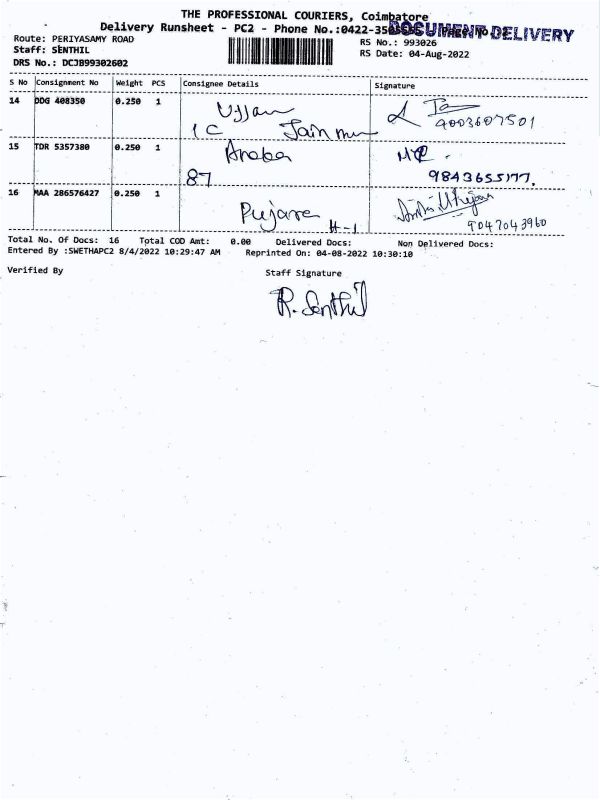 THE PROFESSIONAL COURIERS, Coimbatore
Delivery Runsheet - PC2 - Phone No.:0422-35
DOCUMENT DELIVERY
Route: PERIYASAMY ROAD
RS No.: 993026
Staff: SENTHIL
RS Date: 04-Aug-2022
DRS No.: DCJB99302602
S No Consignment No Weight PCS Consignee Details Signature
14 DDG 408350 0.250 1 Ujjan
1C Jain 9003607501
15 TDR 5357380 0.250 1
87 9843655177.
16 MAA 286576427 0.250 1 Pujara H-1
9047043960
Total No. Of Docs: 16 Total COD Amt: 0.00 Delivered Docs: Non Delivered Docs:
Entered By :SWETHAPC2 8/4/2022 10:29:47 AM Reprinted On: 04-08-2022 10:30:10
Verified By Staff Signature
R. Senthil